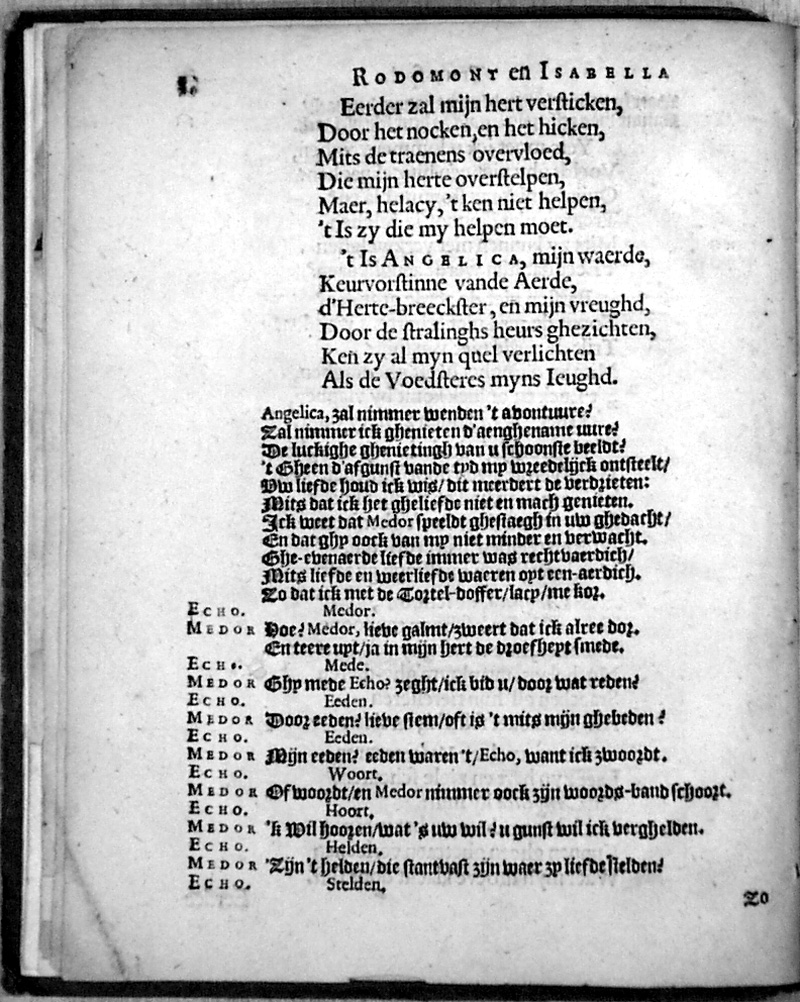 RODOMONT en ISABELLA
Eerder zal mijn hert versticken,
Door het nocken, en het hicken,
Mits de traenens overvloed,
Die mijn herte overstelpen,
Maer, helacy, 't ken niet helpen,
't Is zy die my helpen moet.
't Is ANGELICA, mijn waerde,
Keurvorstinne vande Aerde,
d'Herte-breeckster, en mijn vreughd,
Door de stralinghs heurs ghezichten,
Ken zy al myn quel verlichten
Als de Voedsteres myns Ieughd.
Angelica, zal nimmer wenden 't avontuure?
Zal nimmer ick ghenieten d'aenghename uure?
De luckighe ghenietingh van u schoonste beeldt?
't Gheen d'afgunst vande tyd my wreedelijck ontsteelt/
Uw liefde houd ick wis/ dit meerdert de verdrieten:
Mits dat ick het gheliefde niet en mach genieten.
Ick weet dat Medor speeldt ghestaegh in uw ghedacht/
En dat ghy oock van my niet minder en verwacht.
Ghe-evenaerde liefde immer was rechtvaerdich/
Mits liefde en weerliefde waeren opt een-aerdich.
Zo dat ick met de Tortel-doffer/lacy/me kor.
ECHO. Medor.
MEDOR Hoe? Medor, lieve galmt/zweert dat ick alree dor.
En teere upt/ja in mijn hert de droefheyt smede.
ECHO. Mede.
MEDOR Ghy mede Echo? zeght/ick bid u/ door wat reden?
ECHO. Eeden.
MEDOR Door eeden? lieve stem/oft is 't mits mijn ghebeden?
ECHO. Eeden.
MEDOR Mijn eeden? eeden waren 't/Echo, want ick zwoordt.
ECHO. Woort.
MEDOR Of woordt/en Medor nimmer oock zijn woords-band schoort.
ECHO. Hoort.
MEDOR 'k Wil hooren/wat 's uw wil? u gunst wil ick verghelden.
ECHO. Helden.
MEDOR 'Zijn 't helden/die stantvast zijn waer zy liefde stelden?
ECHO. Stelden.
Zo